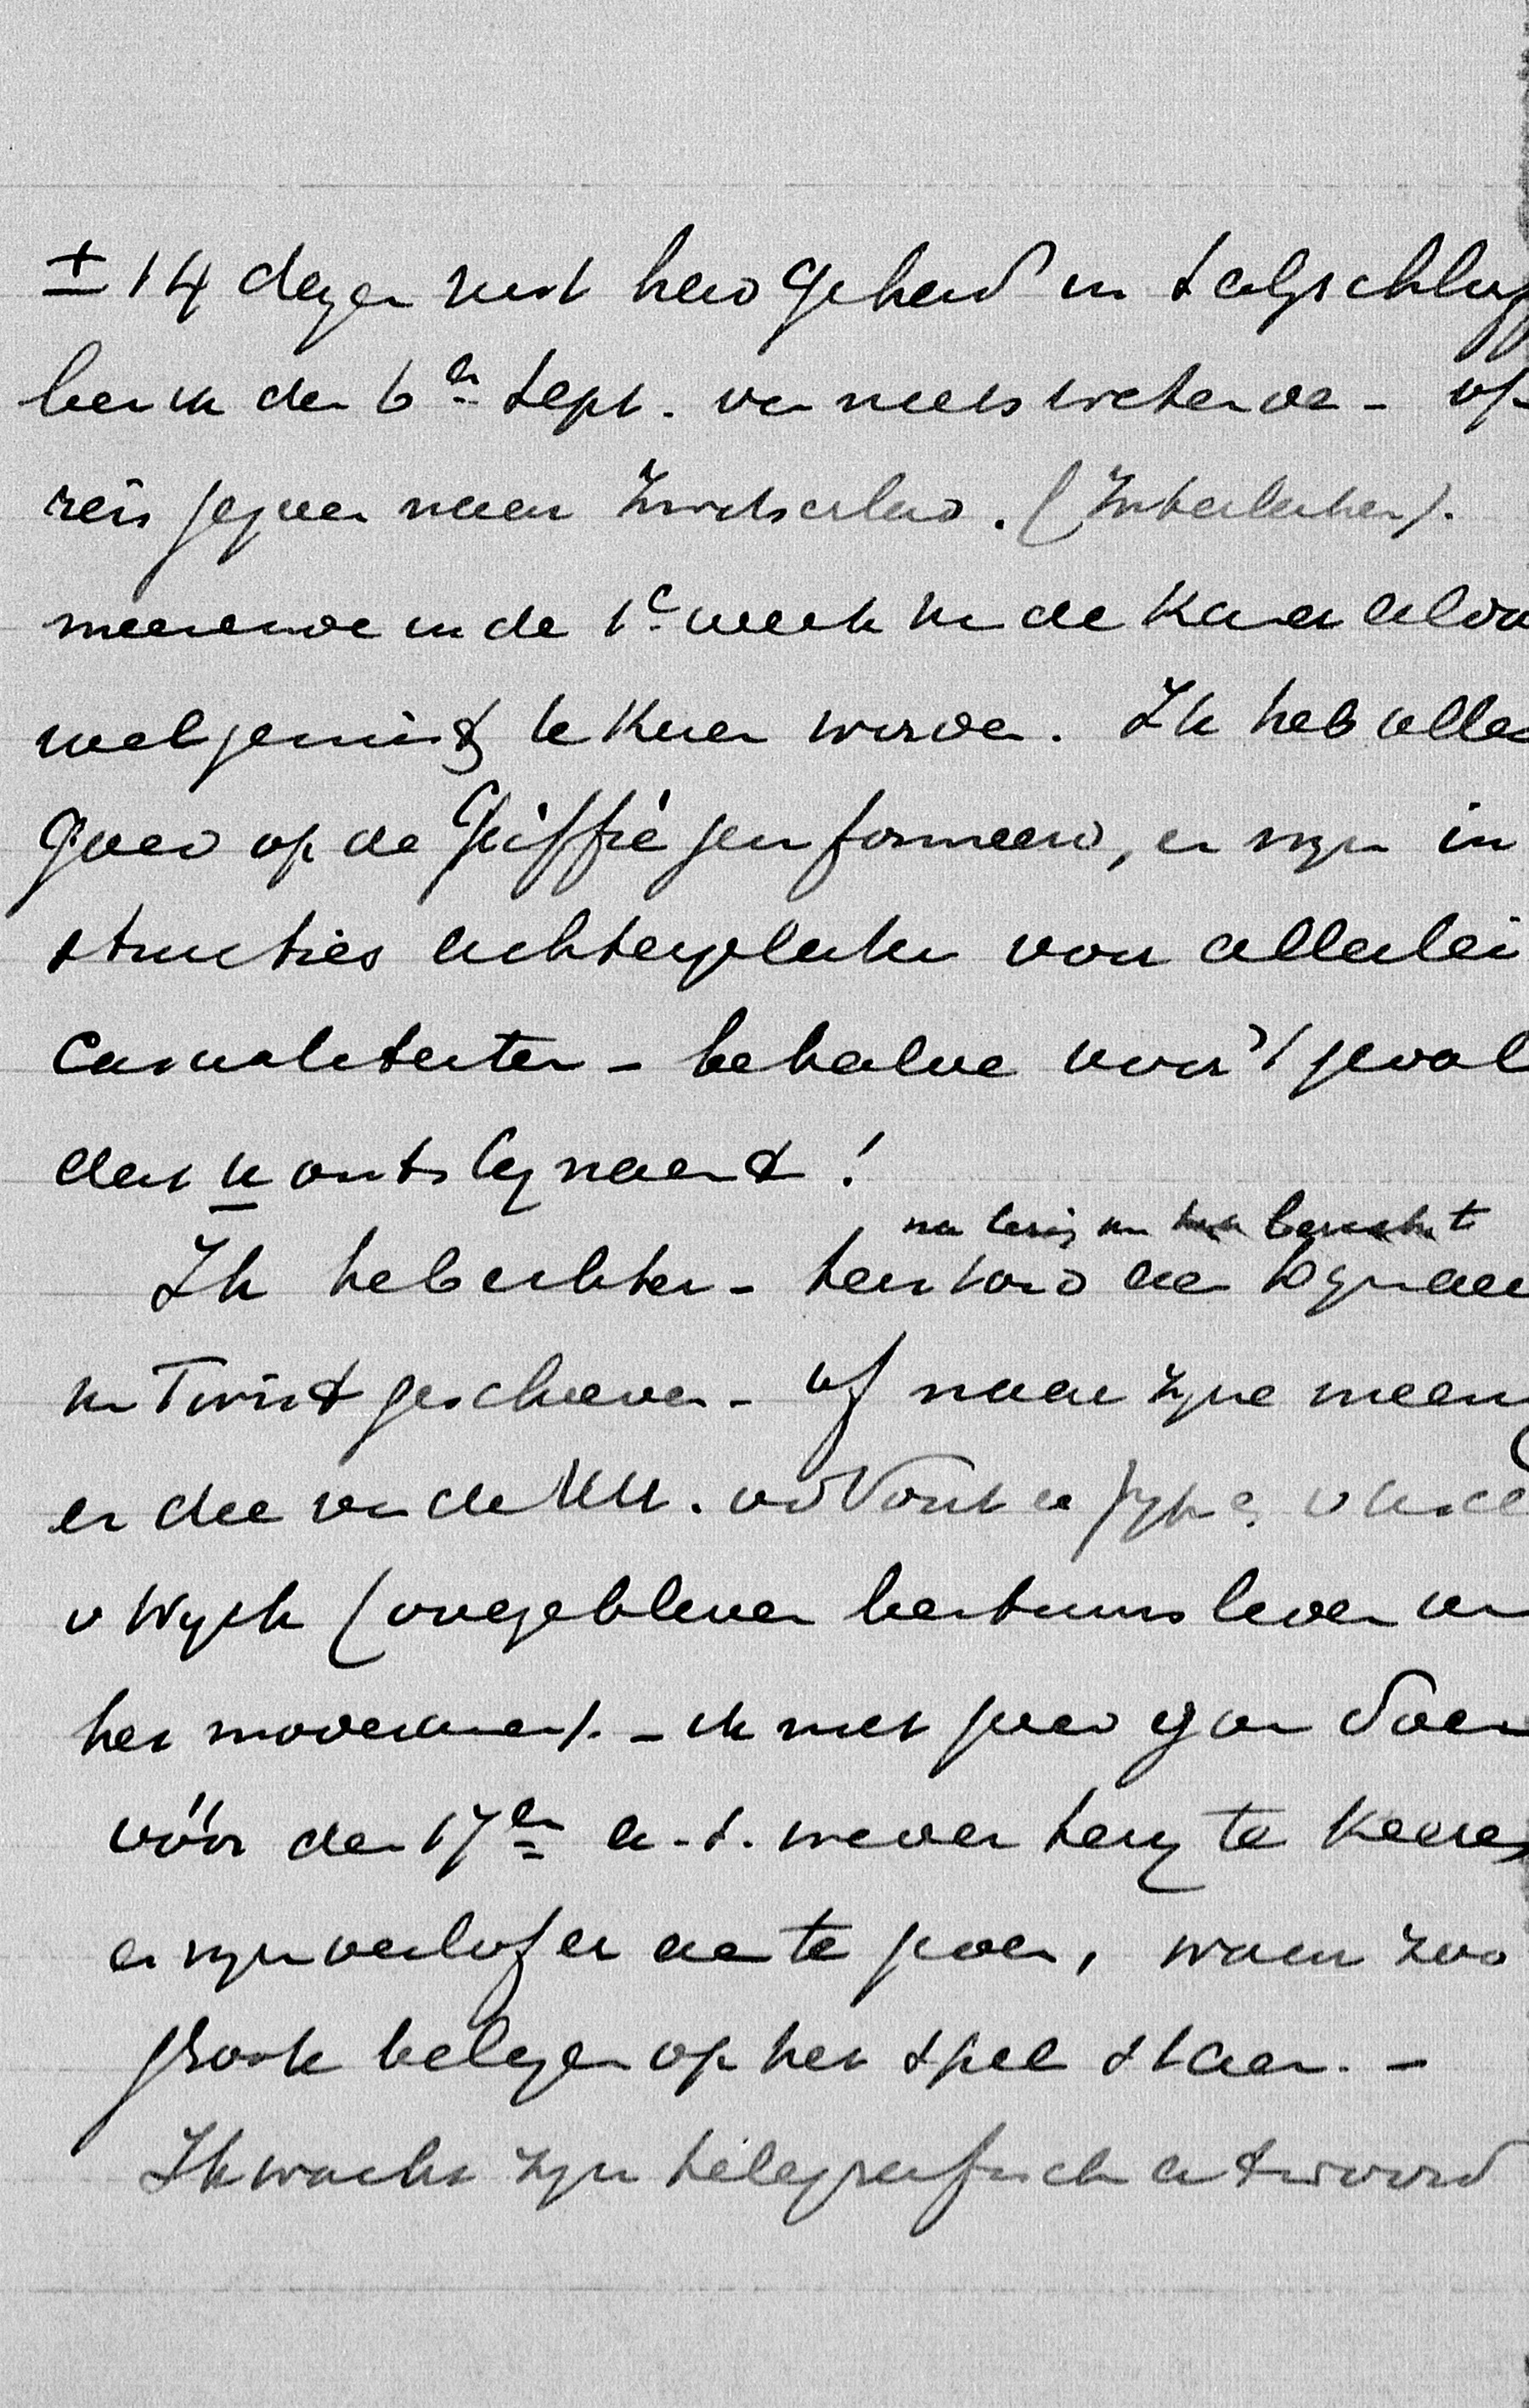 ± 14 dagen rust had gehad in Salzschlirf
ben ik den 6en Sept. van niets wetende - op
reis gegaan naar Zwitserland. (Interlaken).
meenende in de 1e week in de Kamer aldaar
wel gemist te kunnen worden. Ik heb alles
goed op de Griffie geinformeerd, en mijn in
structies achtergelaten voor allerlei
Casualiteiten - behalve voor 't geval
dat u ontslag naamt!
Ik heb echter - na lezing van het bericht
terstond aan
in Twist geschreven - of naar zijne meening
en die van de HH. vd
v Wijck (overgebleven bestuursleden van
het moderamen). - ik niet goed zou doen
vóór den 17en a.s. weder terug te keeren
en mijn verlof er aan te geven, waar zoo
groote belangen op het spel staan. -
Ik wacht zijn telegrafisch antwoord